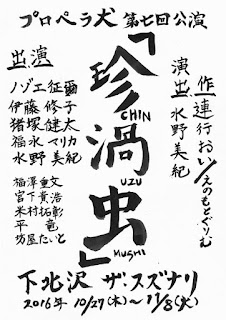 プロペラ犬 第七回公演
「珍渦虫」
CHIN
UZU
MUSHI
作 楽行おい/えのもとぐりむ
演出 水野美紀
出演
ノゾエ征爾
伊藤修子
猪塚健太
福永マリカ
水野美紀
福澤重文
宮下貴浩
米村拓彰
平竜
坊屋たいと
下北沢 ザ・スズナリ
2016年 10/27(木)~11/8(火)